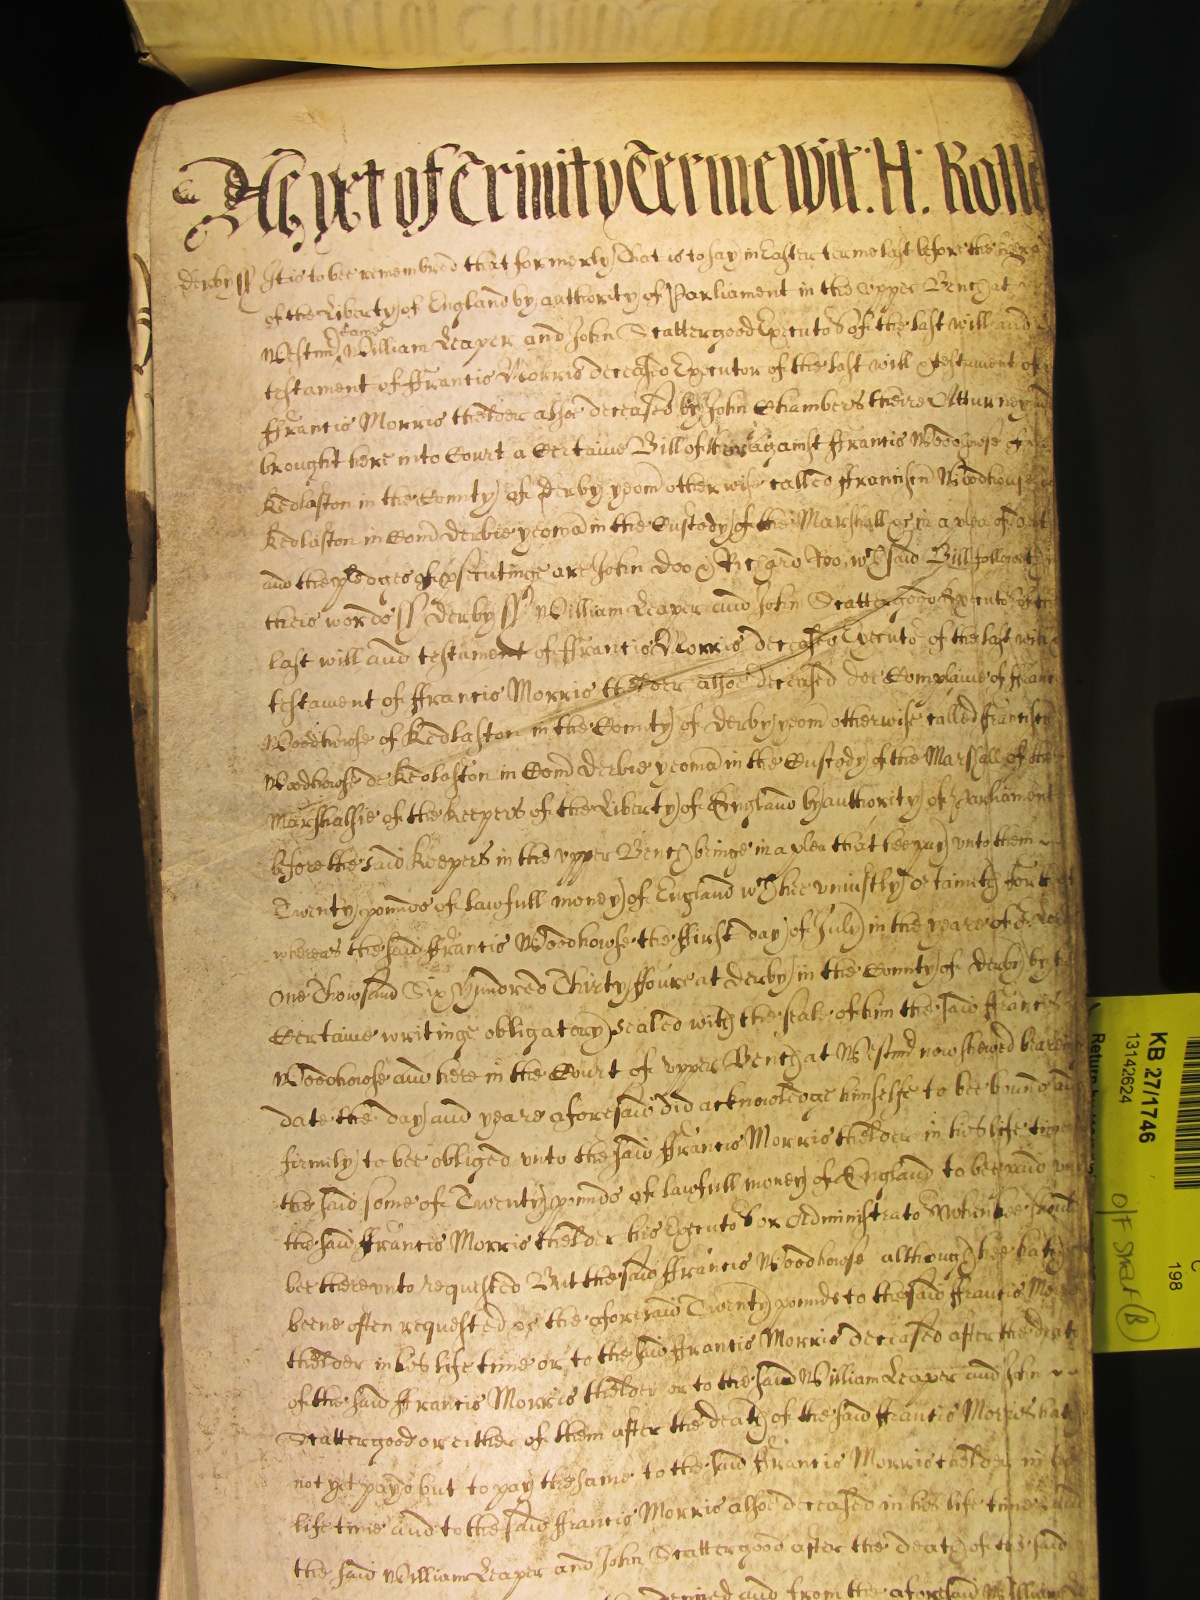 As yet of Trinity Terme Wit: H: Rolle
Derby ss It is to bee remembred that formerly that is to say in Easter terme last before the keepers
of the Liberty of England by authority of Parliament in the upper Bench at
Westmr came William Leaper and John Scattergood Executors of the last will and
testament of ffrancis Morris deceased Executor of the last will & testament of
ffrancis Morris thelder alsoe deceased by John Chambers theire Atturney and
brought here into Court a Certaine Bill of theirs against ffrancis Woodhowse of
Kedlaston in the County of Derby yeom otherwise called ffranciscu Woodhouse de
Kedlaston in Com Derbie yeoma in the Custody of the Marshall &c in a plea of debt
and the pledges of psecutinge are John Doo & Richard Roo. wch said Bill followeth in
theis words ss Derby ss William Leaper and John Scattergood Executors of the
last will and testament of ffrancis Morris deceased Executor of the last will
testament of ffrancis Morris thelder alsoe deceased doe Complaine of ffrancis
Woodhowse of Kedlaston in the County of Derby yeom otherwise called ffranciscu
Woodhowse de Kedlaston in Com Derbie yeoma in the Custody of the Marshall of the
Marshalsie of the keepers of the Liberty of England by authority of Parliament
before the said keepers in the upper Bench beinge in a plea that hee pay unto them
Twenty pounds of lawfull money of England wch hee uniustly detaineth for that
whereas the said ffrancis Woodhowse the ffirst day of July in the yeare of or Lord
one Thowsand Six Hundred Thirty ffoure at Derby in the County of Derby by his
Certaine writinge obligatory sealed with the seale of him the said ffrancis
Woodhowse and here in the Court of upper Bench at Westmr now shewed beareinge
date the day and yeare aforesaid did acknowledge himselfe to bee bound and
firmly to bee obliged unto the said ffrancis Morris thelder in his life time
the said some of Twenty pounds of lawfull money of England to bee paid unto
the said ffrancis Morris thelder his Executors or Administrators when hee should
bee thereunto requested But the said ffrancis Woodhowse although hee hath
beene often requested &c the aforesaid Twenty pounds to the said ffrancis Morris
thelder in his life time or to the said ffrancis Morris deceased after the death
of the said ffrancis Morris thelder or to the said William Leaper and John
Scattergood or either of them after the death of the said ffrancis Morris hath
not yet payd but to pay the same to the said ffrancis Morris thelder in his
life time and to the said ffrancis Morris alsoe deceased in his life time and
the said William Leaper and John Scattergood after the death of the said
denied and from the aforesaid William
KB 27/1746
13142624
198
O/F Shelf B